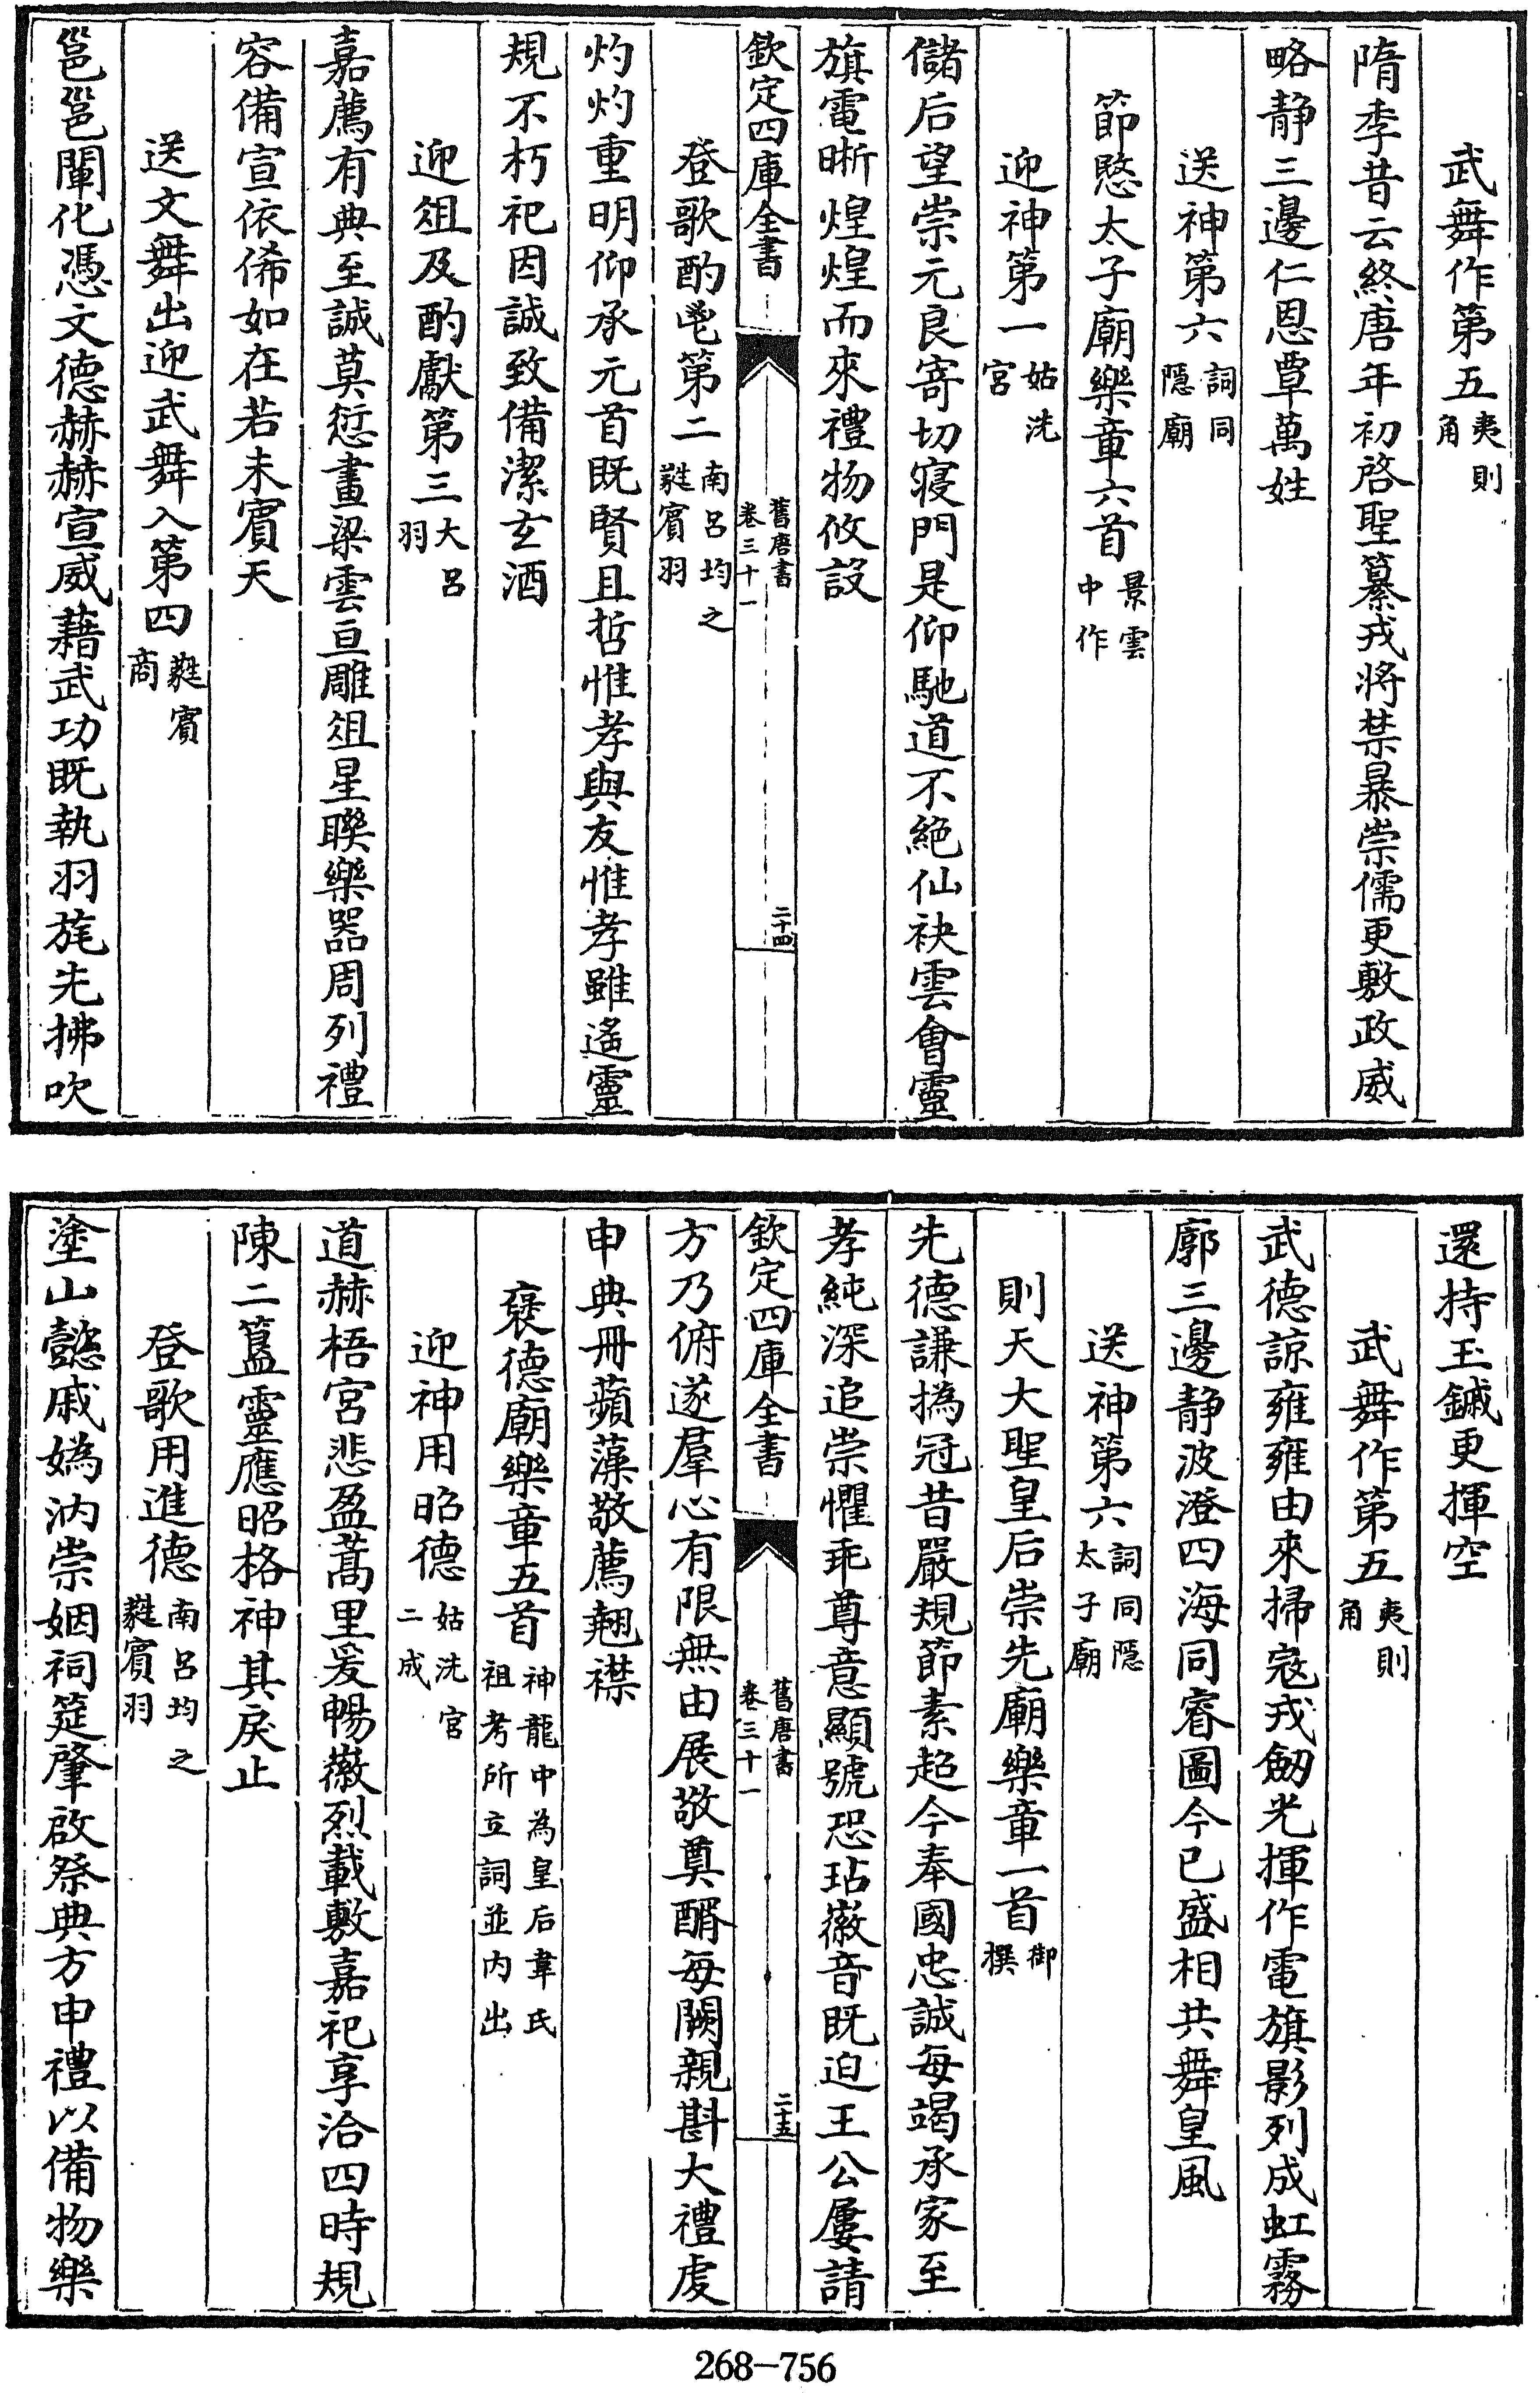 武舞作第五夷則角
隋季昔云終唐年初啓聖纂戎將禁暴崇儒更敷政威
略静三邊仁恩覃萬姓
送神第六詞同隱廟
節愍太子廟樂章六首景雲中作
迎神第一姑洗宮
儲后望崇元良寄切寢門是仰馳道不絶仙袂雲會靈
旗電晰煌煌而來禮物攸設
欽定四庫全書
舊唐書
卷三十一
二十四
登歌酌鬯第二南吕均之蕤賓羽
灼灼重明仰承元首既賢且哲惟孝與友惟孝雖遙靈
規不朽祀因誠致備潔玄酒
迎俎及酌獻第三大呂羽
嘉薦有典至誠莫愆畫梁雲亘雕俎星聯樂器周列禮
容備宣依俙如在若未賓天
送文舞出迎武舞入第四蕤賓商
邕邕闡化憑文德赫赫宣威藉武功既執羽旄先拂吹
還持玉鏚更揮空
武舞作第五夷則角
武德諒雍雍由來掃寇戎劒光揮作電旗影列成虹霧
廓三邊静波澄四海同睿圖今已盛相共舞皇風
送神第六詞同隱太子廟
則天大聖皇后崇先廟樂章一首御撰
先德謙撝冠昔嚴規節素超今奉國忠誠每竭承家至
孝純深追崇懼乖尊意顯號恐玷徽音既迫王公屢請
欽定四庫全書
舊唐書
卷三十一
二十五
方乃俯遂羣心有限無由展敬奠酹每闕親斟大禮虔
申典冊蘋藻敬薦翹襟
褒德廟樂章五首神龍中為皇后韋氏祖考所立詞並内出
迎神用昭德姑洗宫二成
道赫梧宮悲盈蒿里爰暢徽烈載敷嘉祀享洽四時規
陳二簋靈應昭格神其戾止
登歌用進德南呂均之蕤賓羽
塗山懿戚媯汭崇姻祠筵肇啟祭典方申禮以備物樂
268-756